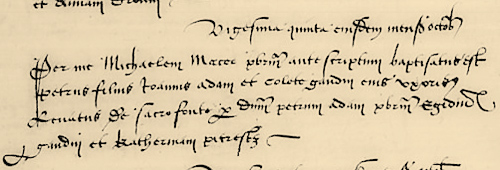 et
Vigesima quinta eiusdem mensis octob
Per me Michaelem Marcoz pbrm ante scriptum baptisatus est
petrus filius Joannis adam et Colete gaudin eius uxoris
levatus de sacro fonte p dnm petrum adam pbrm Egidm
gaudin et Katherinam